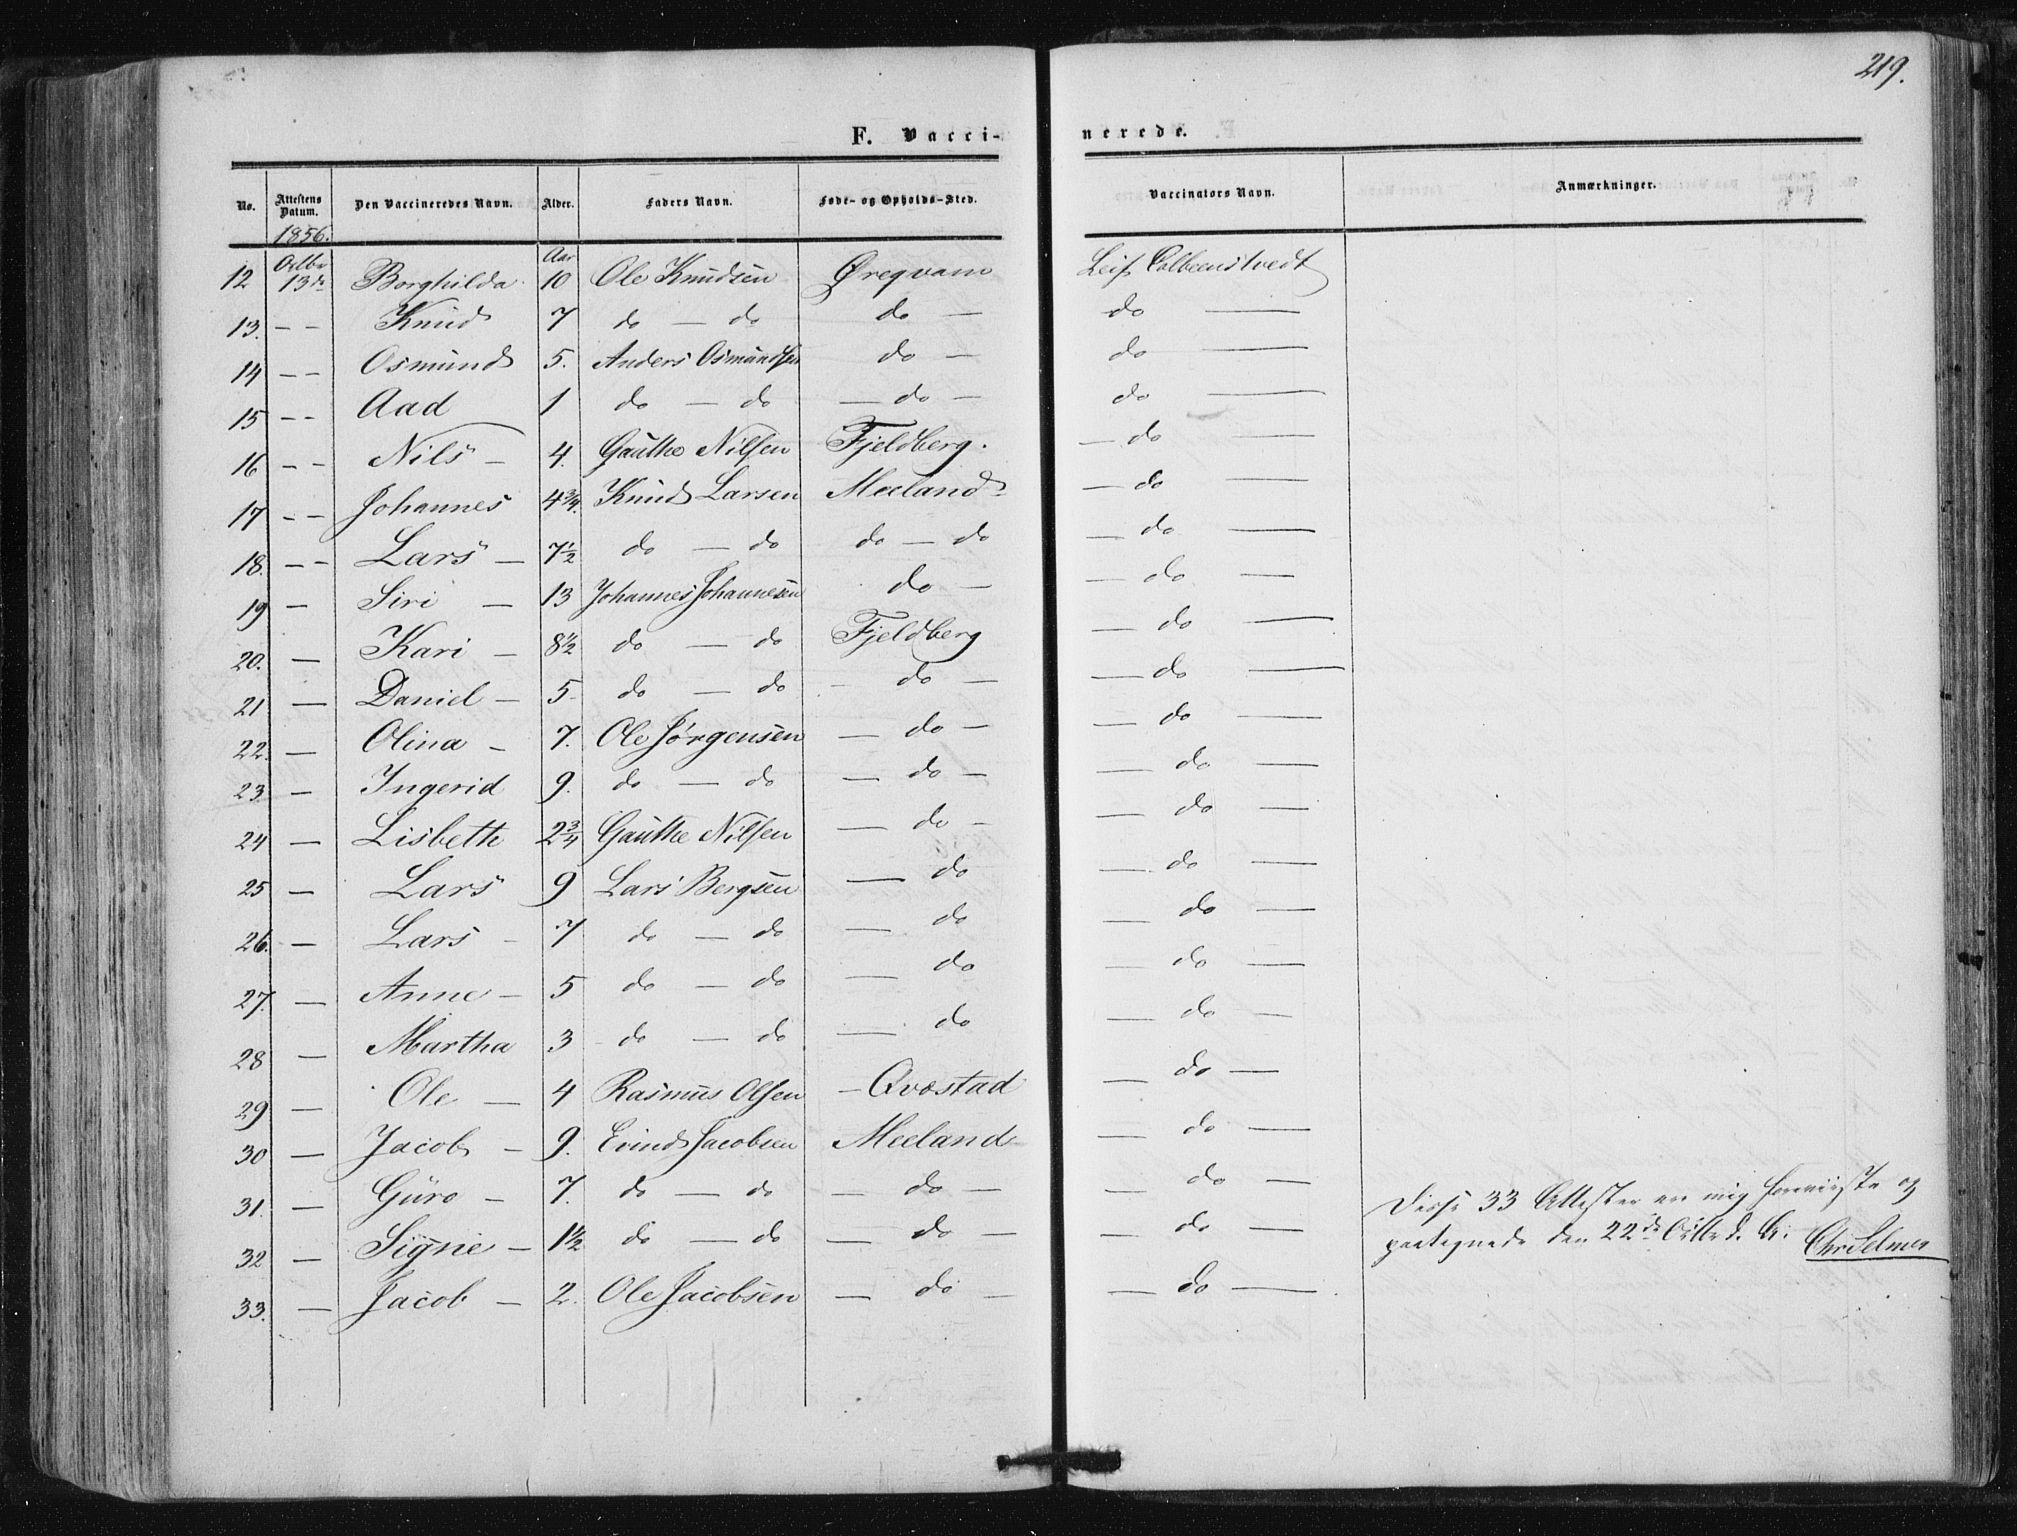 219.
F. Vacci-nerede.
No. Attestens Datum. Den Vaccineredes Navn. Alder. Faders Navn. Føde- og Opholds-Sted. Vaccinators Navn. Anmærkninger.
1856.
Aar
12 Octbr 13de Borghilda 10 Ole Knudsen Øreqvam Leif
13. - - Knud 7 do - do do - do -
14 - - Osmund 5. Anders Osmundsen do - do -
15 - - Aad 1 do - do - do - do -
16 - - Nils - 4. Gauthe Nilsen Fjeldberg. - do -
17 - - Johannes 4 3/4. Knud Larsen Meeland - do -
18. - - Lars - 7 1/2 do - do do - do - do -
19 - Siri - 13 Johannes Johannesen do - - do -
20. - Kari - 8 1/2 do - do Fjeldberg - do -
21 - Daniel - 5. do - do - do - - do -
22. - Olina - 7. Ole Jørgensen - do - - do -
23. - Ingerid 9. do - do - do - - do -
24 - Lisbeth 2 3/4 Gauthe Nilsen - do - - do -
25 - Lars 9 Lars Bergsen - do - do -
26. - Lars - 7 do - do - do - do -
27. - Anne - 5 do - do - do - do -
28 - Martha 3 - do - do - do - do -
29 - Ole - 4 Rasmus Olsen - Qvostad - do -
30 - Jacob - 9. Evind Jacobsen Meeland - do -
31. - Guro - 7. do - do - do - - do -
32 - Signe - 1 1/2 do - do - do - - do -
33. - Jacob - 2. Ole Jacobsen - do - - do -
Disse 33 Attester er mig foreviiste og
paategnede den 22de Octbr d. A: Chr Selmer